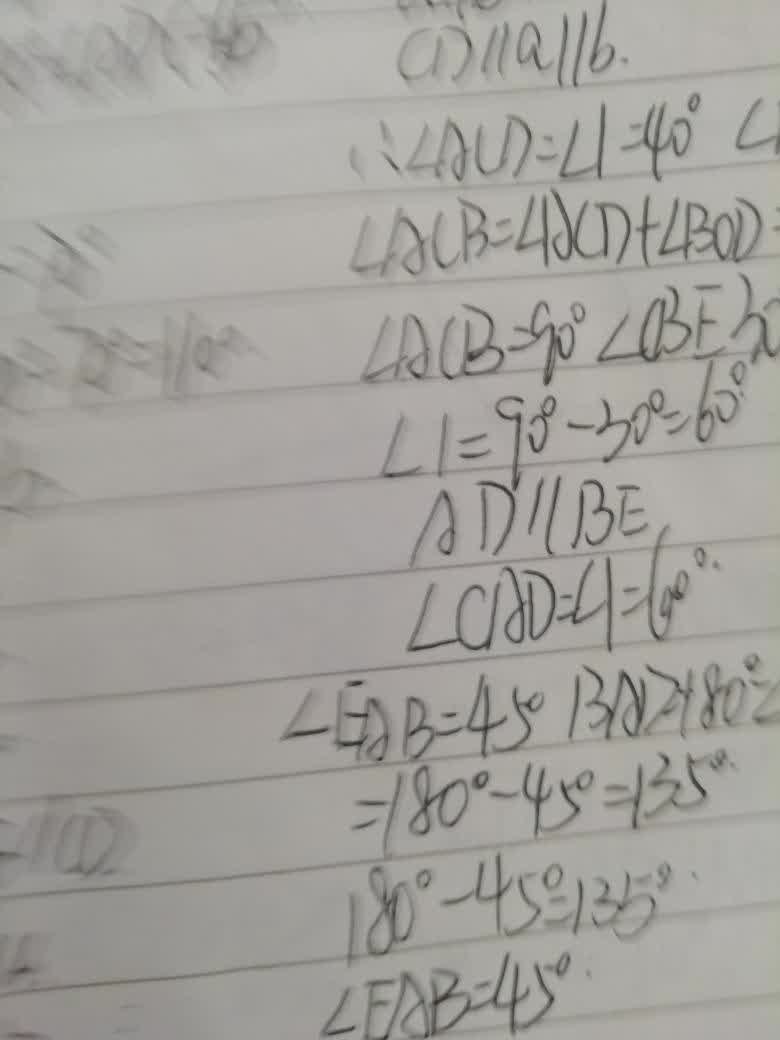 CD//a//b.
∴∠ACD=∠1=40° ∠
∠ACB=∠ACD+∠BCD=
∠ACB=90° ∠CBE 30
∠1=90°-30°=60°
AD//BE
∠CAD=∠1=60°.
∠EAB=45° BAD=180°-∠
=180°-45°=135°.
180°-45°=135°.
∠EAB=45°.